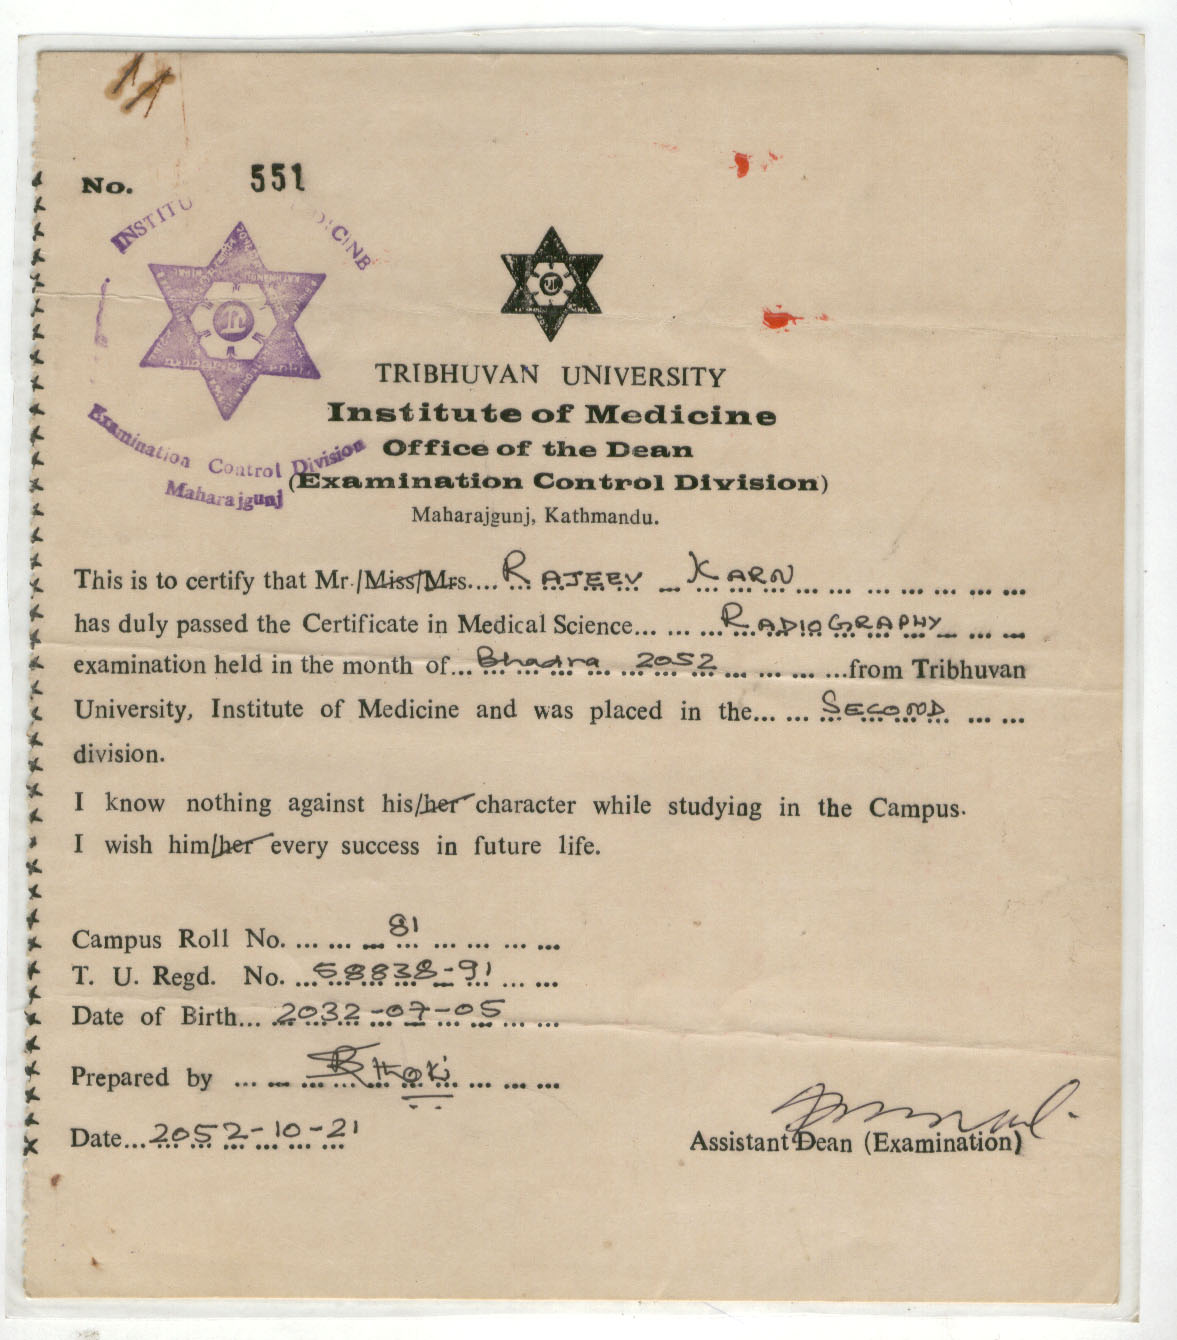 No. 551
INSTITU DICINE
Examination Control Division
Maharajgunj
TRIBHUVAN UNIVERSITY
Institute of Medicine
Office of the Dean
(Examination Control Division)
Maharajgunj, Kathmandu.
This is to certify that Mr./Miss/Mrs.... RAJEEV KARN
has duly passed the Certificate in Medical Science... RADIOGRAPHY
examination held in the month of... Bhadra 2052 ...from Tribhuvan
University, Institute of Medicine and was placed in the... SECOND
division.
I know nothing against his/her character while studying in the Campus.
I wish him/her every success in future life.
Campus Roll No. ... 81
T. U. Regd. No. ... 58838-91
Date of Birth... 2032-07-05
Prepared by ...
Date... 2052-10-21
Assistant Dean (Examination)